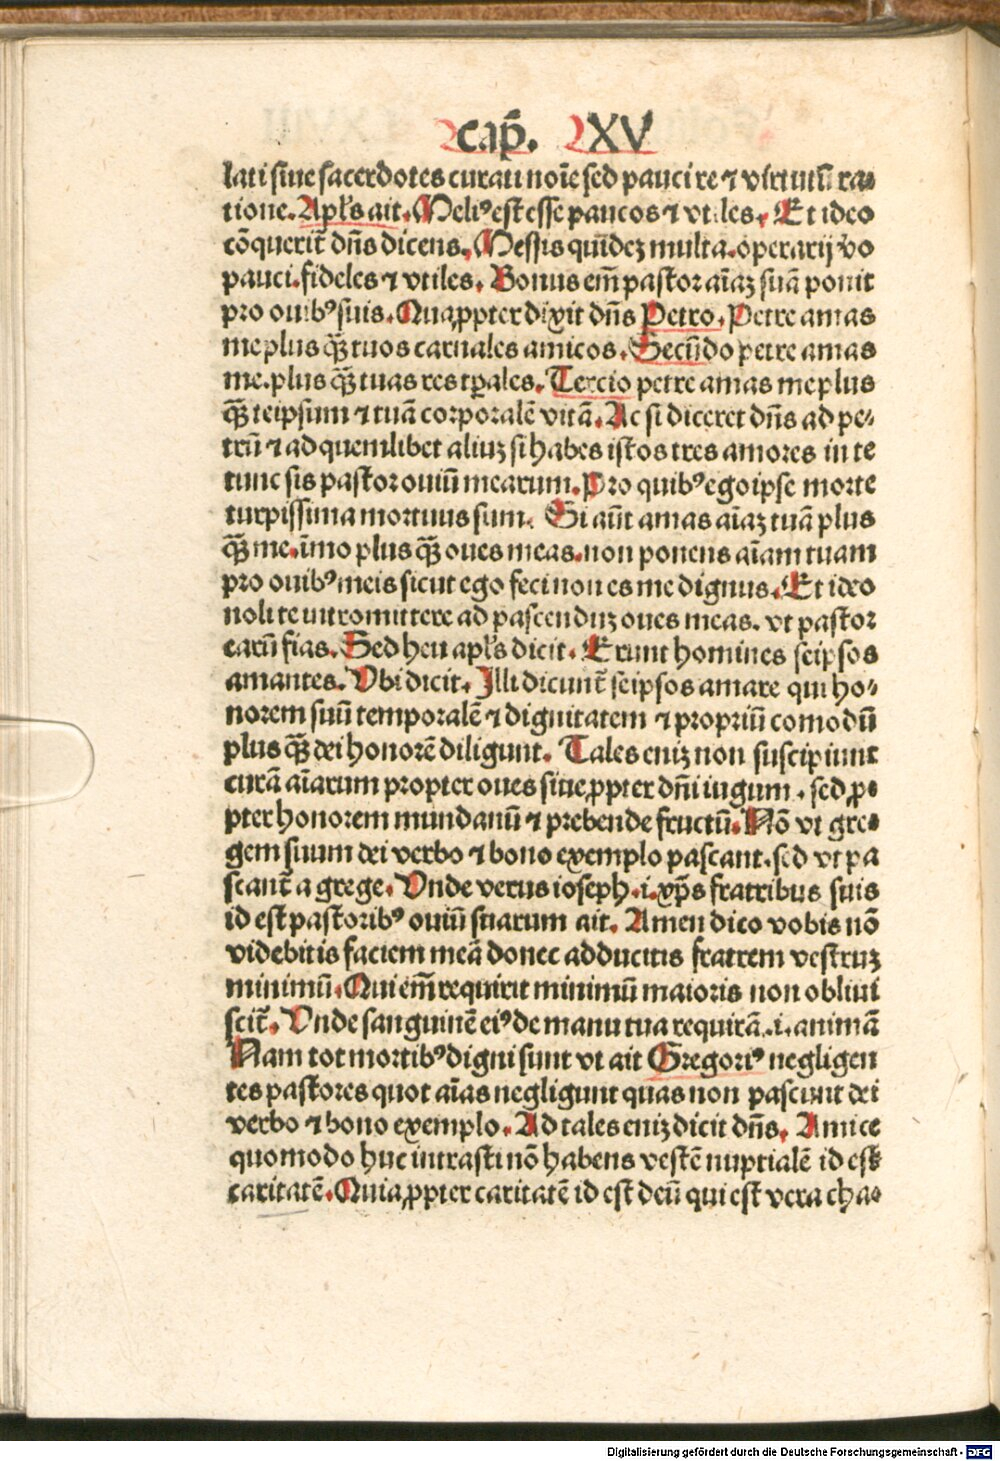 Cap̄. XXV
lati siue sacerdotes curati noīe sed pauci re ⁊ virtutū ra⸗
tione. Apl̓s ait. Meliꝰ est esse paucos ⁊ vtiles. Et ideo
cōquerit᷑ dn̄s dicens. Messis quidez multa. operarij v̓o
pauci. fideles ⁊ vtiles. Bonus em̄ pastor aīaz suā ponit
pro ouibꝰ suis. Qua ꝓpter dixit dn̄s Petro. Petre amas
me plus qꝫ̄ tuos carnales amicos. Secūdo petre amas
me. plus qꝫ̄ tuas res tꝑales. Tercio petre amas me plus
qꝫ̄ teipsum ⁊ tuā corporalē vitā. Ac si diceret dn̄s ad pe⸗
trū ⁊ ad quemlibet aliuz si habes istos tres amores in te
tunc sis pastor ouiū mearum. Pro quibꝰ ego ipse morte
turpissima mortuus sum. Si aūt amas aīaz tuā plus
qꝫ̄ me. īmo plus qꝫ̄ oues meas. non ponens aīam tuam
pro ouibꝰ meis sicut ego feci non es me dignus. Et ideo
noli te intromittere ad pascenduz oues meas. vt pastor
earū fias. Sed heu apl̓s dicit. Erunt homines seipsos
amantes. Vbi dicit. Illi dicunt᷑ seipsos amare qui ho⸗
norem suū temporalē ⁊ dignitatem ⁊ propriū comodū
plus qꝫ̄ dei honorē diligunt. Tales eniz non suscipiunt
curā aīarum propter oues siue ꝓpter dn̄i iugum. sed ꝓ⸗
pter honorem mundanū ⁊ prebende fructū. Nō vt gre⸗
gem suum dei verbo ⁊ bono exemplo pascant. sed vt pa
scant᷑ a grege. Vnde verus ioseph. i. xp̄s fratribus suis
id est pastoribꝰ ouiū suarum ait. Amen dico vobis nō
videbitis faciem meā donec adducitis fratrem vestruz
minimū. Qui em̄ requirit minimū maioris non obliui
scit᷑. Vnde sanguinē eiꝰ de manu tua requirā. i. animā
Nam tot mortibꝰ digni sunt vt ait Gregoriꝰ negligen
tes pastores quot aīas negligunt quas non pascunt dei
verbo ⁊ bono exemplo. Ad tales eniz dicit dn̄s. Amice
quomodo huc intrasti nō habens vestē nuptialē id est
caritatē. Quia ꝓpter caritatē id est deū qui est vera cha⸗
Digitalisierung gefördert durch die Deutsche Forschungsgemeinschaft - DFG